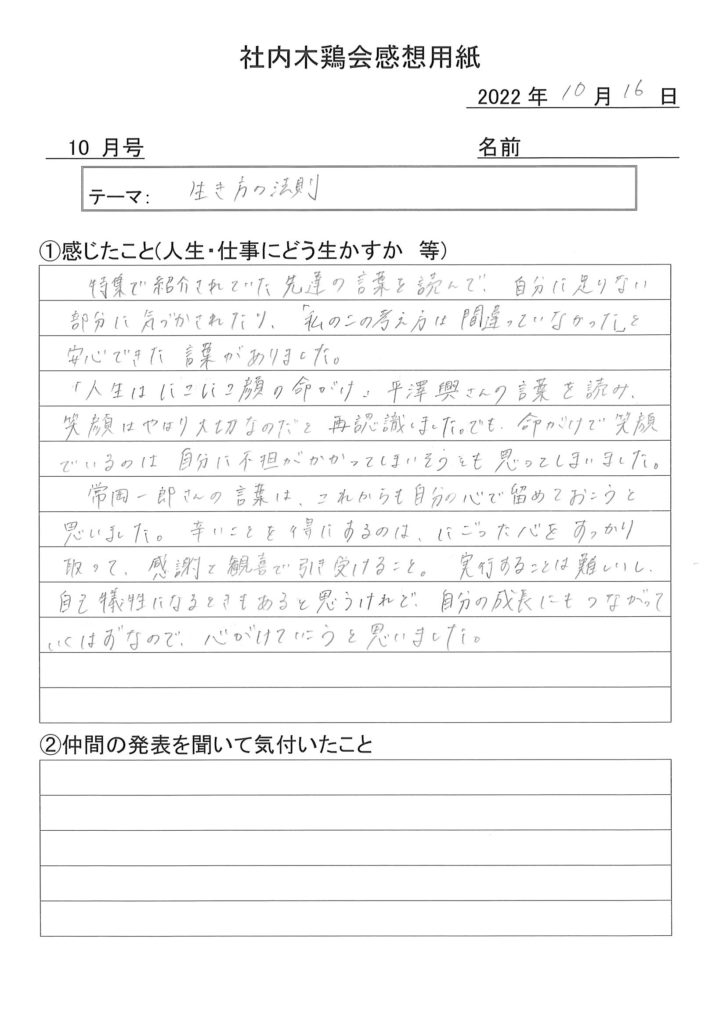 社内木鶏会感想用紙
2022 年 10 月 16 日
10 月号 名前
テーマ： 生き方の法則
①感じたこと(人生・仕事にどう生かすか 等)
特集で紹介されていた先達の言葉を読んで、自分に足りない
部分に気づかされたり、「私のこの考え方は間違っていなかった」と
安心できた言葉がありました。
「人生はにこにこ顔の命がけ」平澤興さんの言葉を読み、
笑顔はやはり大切なのだと再認識しました。でも、命がけで笑顔
でいるのは自分に不担がかかってしまいそうとも思ってしまいました。
常岡一郎さんの言葉は、これからも自分の心で留めておこうと
思いました。辛いことを得にするのは、にごった心をすっかり
取って、感謝と観喜で引き受けること。実行することは難しいし、
自己犠牲になるときもあると思うけれど、自分の成長にもつながって
いくはずなので、心がけていこうと思いました。
②仲間の発表を聞いて気付いたこと